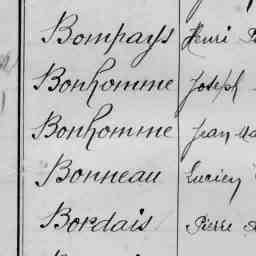 Bompays Henri
Bonhomme Joseph
Bonhomme Jean
Bonneau Lucien
Bordais Pierre